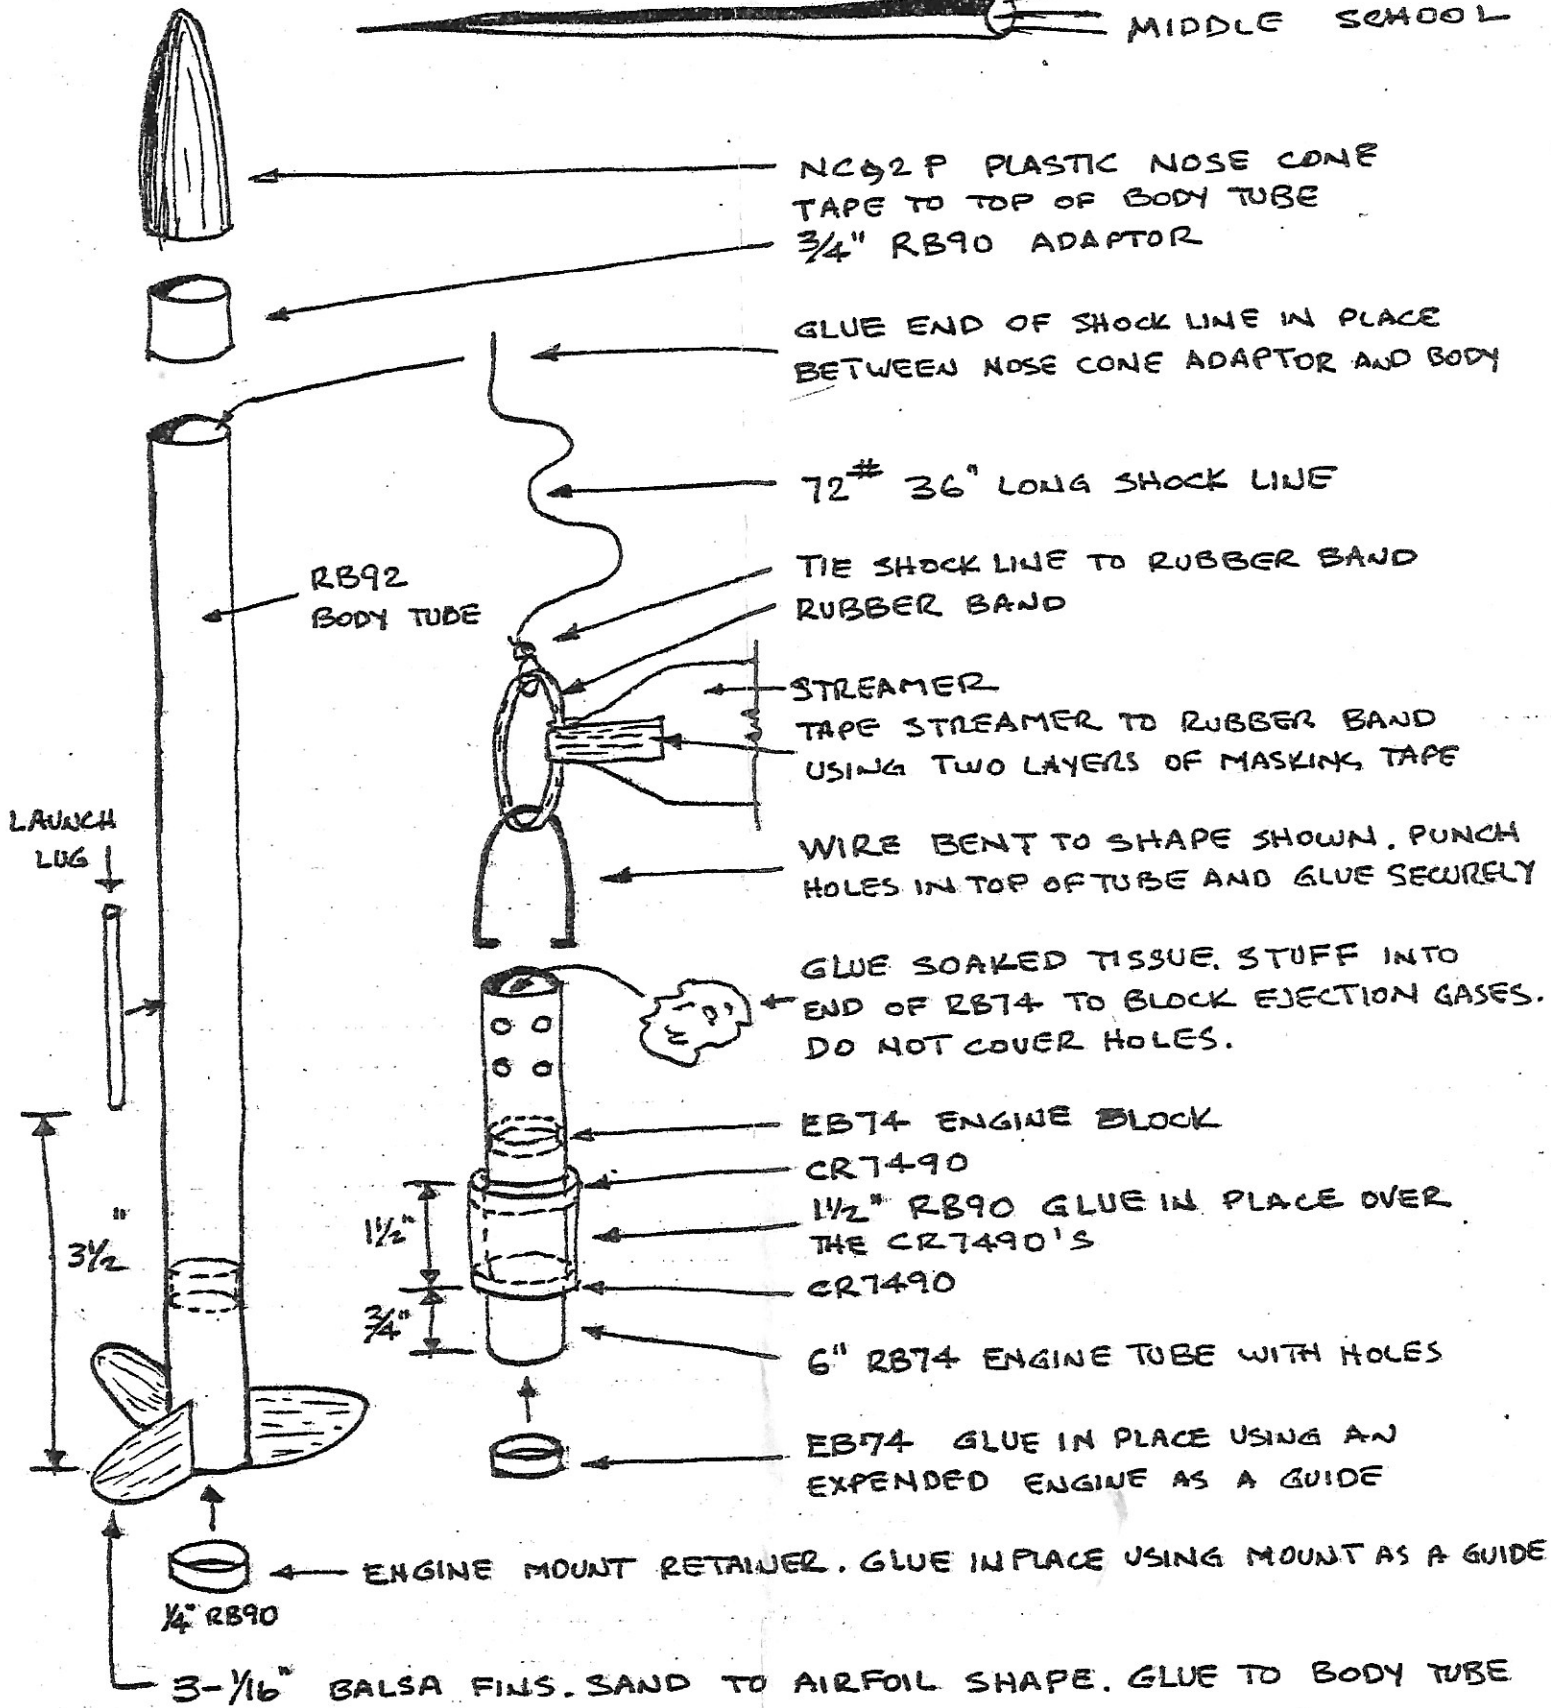 MIDDLE SCHOOL
NC92P PLASTIC NOSE CONE
TAPE TO TOP OF BODY TUBE
3/4" RB90 ADAPTOR
GLUE END OF SHOCK LINE IN PLACE
BETWEEN NOSE CONE ADAPTOR AND BODY
72# 36" LONG SHOCK LINE
RB92
BODY TUBE
TIE SHOCK LINE TO RUBBER BAND
RUBBER BAND
STREAMER
TAPE STREAMER TO RUBBER BAND
USING TWO LAYERS OF MASKING TAPE
LAUNCH
LUG
WIRE BENT TO SHAPE SHOWN. PUNCH
HOLES IN TOP OF TUBE AND GLUE SECURELY
GLUE SOAKED TISSUE. STUFF INTO
END OF RB74 TO BLOCK EJECTION GASES.
DO NOT COVER HOLES.
EB74 ENGINE BLOCK
CR7490
1 1/2" RB90 GLUE IN PLACE OVER
THE CR7490'S
CR7490
3 1/2"
1 1/2"
3/4"
6" RB74 ENGINE TUBE WITH HOLES
EB74 GLUE IN PLACE USING AN
EXPENDED ENGINE AS A GUIDE
ENGINE MOUNT RETAINER. GLUE IN PLACE USING MOUNT AS A GUIDE
1/4" RB90
3-1/16" BALSA FINS. SAND TO AIRFOIL SHAPE. GLUE TO BODY TUBE